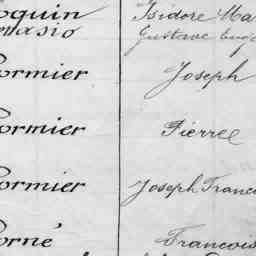 oquin Isidore Ma
Gustave
ormier Joseph
ormier Pierre
ormier Joseph Franc
orné Francois